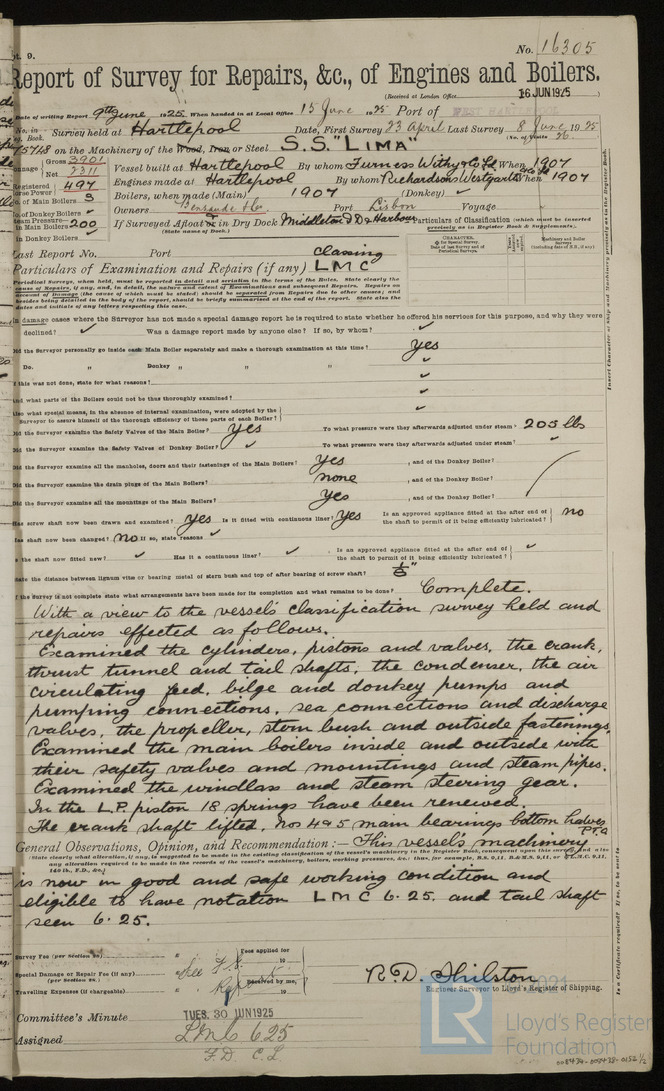 pt. 9.
No. 16305
Report of Survey for Repairs, &c., of Engines and Boilers.
(Received at London Office 16 JUN 1925
Date of writing Report 9th June 1925. When handed in at Local Office 15 June 1925 Port of WEST HARTLEPOOL
No. in Survey held at Hartlepool Date, First Survey 23 April Last Survey 8 June 1925
Reg. Book. (No. of Visits 26
75748 on the Machinery of the Wood, Iron or Steel S.S. "LIMA"
Tonnage Gross 3901
Net 2311
Vessel built at Hartlepool By whom Furness Withy & Co Ld When 1907
Registered Horse Power 497
Engines made at Hartlepool By whom Richardsons Westgarth & Co Ld When 1907
No. of Main Boilers 3
Boilers, when made (Main) 1907 (Donkey) ✓
No. of Donkey Boilers ✓
Owners Bensaude & Co Port Lisbon Voyage
Steam Pressure— in Main Boilers 200
If Surveyed Afloat or in Dry Dock Middleton D.D. & Harbour
(State name of Dock.)
in Donkey Boilers ✓
Particulars of Classification (which must be inserted precisely as in Register Book & Supplements).
Last Report No. Port
Particulars of Examination and Repairs (if any) Classing LMC
Periodical Surveys, when held, must be reported in detail and seriatim in the terms of the Rules. State clearly the
cause of Repairs, if any, and, in detail, the nature and extent of Examinations and subsequent Repairs. Repairs on
account of Damage (the cause of which must be stated) should be separated from Repairs due to other causes; and
besides being detailed in the body of the report, should be briefly summarised at the end of the report. State also the
dates and initials of any letters respecting this case.
In damage cases where the Surveyor has not made a special damage report he is required to state whether he offered his services for this purpose, and why they were
declined? ✓ Was a damage report made by anyone else? If so, by whom? ✓
Did the Surveyor personally go inside each Main Boiler separately and make a thorough examination at this time? yes
Do. „ Donkey „ „ „ ✓
If this was not done, state for what reasons? ✓
And what parts of the Boilers could not be thus thoroughly examined? ✓
Also what special means, in the absence of internal examination, were adopted by the
Surveyor to assure himself of the thorough efficiency of those parts of each Boiler? ✓
Did the Surveyor examine the Safety Valves of the Main Boiler? yes To what pressure were they afterwards adjusted under steam? 205 lbs
Did the Surveyor examine the Safety Valves of Donkey Boiler? ✓ To what pressure were they afterwards adjusted under steam? ✓
Did the Surveyor examine all the manholes, doors and their fastenings of the Main Boilers? yes , and of the Donkey Boiler?
Did the Surveyor examine the drain plugs of the Main Boilers? none , and of the Donkey Boiler?
Did the Surveyor examine all the mountings of the Main Boilers? yes , and of the Donkey Boiler?
Has screw shaft now been drawn and examined? yes Is it fitted with continuous liner? yes Is an approved appliance fitted at the after end of the shaft to permit of it being efficiently lubricated? no
Has shaft now been changed? no If so, state reasons ✓
Is the shaft now fitted new? ✓ Has it a continuous liner? ✓ Is an approved appliance fitted at the after end of the shaft to permit of it being efficiently lubricated? ✓
State the distance between lignum vitæ or bearing metal of stern bush and top of after bearing of screw shaft?
If the Survey is not complete state what arrangements have been made for its completion and what remains to be done? Complete.
With a view to the vessel's classification survey held and
repairs effected as follows.
Examined the cylinders, pistons and valves, the crank,
thrust tunnel and tail shafts, the condenser, the air
circulating feed, bilge and donkey pumps and
pumping connections, sea connections and discharge
valves, the propeller, stern bush and outside fastenings.
Examined the main boilers inside and outside with
their safety valves and mountings and steam pipes.
Examined the windlass and steam steering gear.
In the L.P. piston 18 springs have been renewed.
The crank shaft lifted, Nos 4 & 5 main bearings bottom halves
P.T.O
General Observations, Opinion, and Recommendation:— This vessel's machinery
is now in good and safe working condition and
eligible to have notation LMC 6.25. and tail shaft
seen 6.25.
Survey Fee (per Section 29) £ Fees applied for
Special Damage or Repair Fee (if any) (per Section 29.) £ See F.E. Report Received by me,
Travelling Expenses (if chargeable) £
R.D. Shilston
Engineer Surveyor to Lloyd's Register of Shipping.
Committee's Minute TUES. 30 JUN 1925
Assigned LMC 6.25
F.D. C.L.
Insert Character of Ship and Machinery precisely as in the Register Book.
Is a Certificate required? If so, to be sent to
2021
LR Lloyd's Register Foundation
008434-008438-0156 1/2